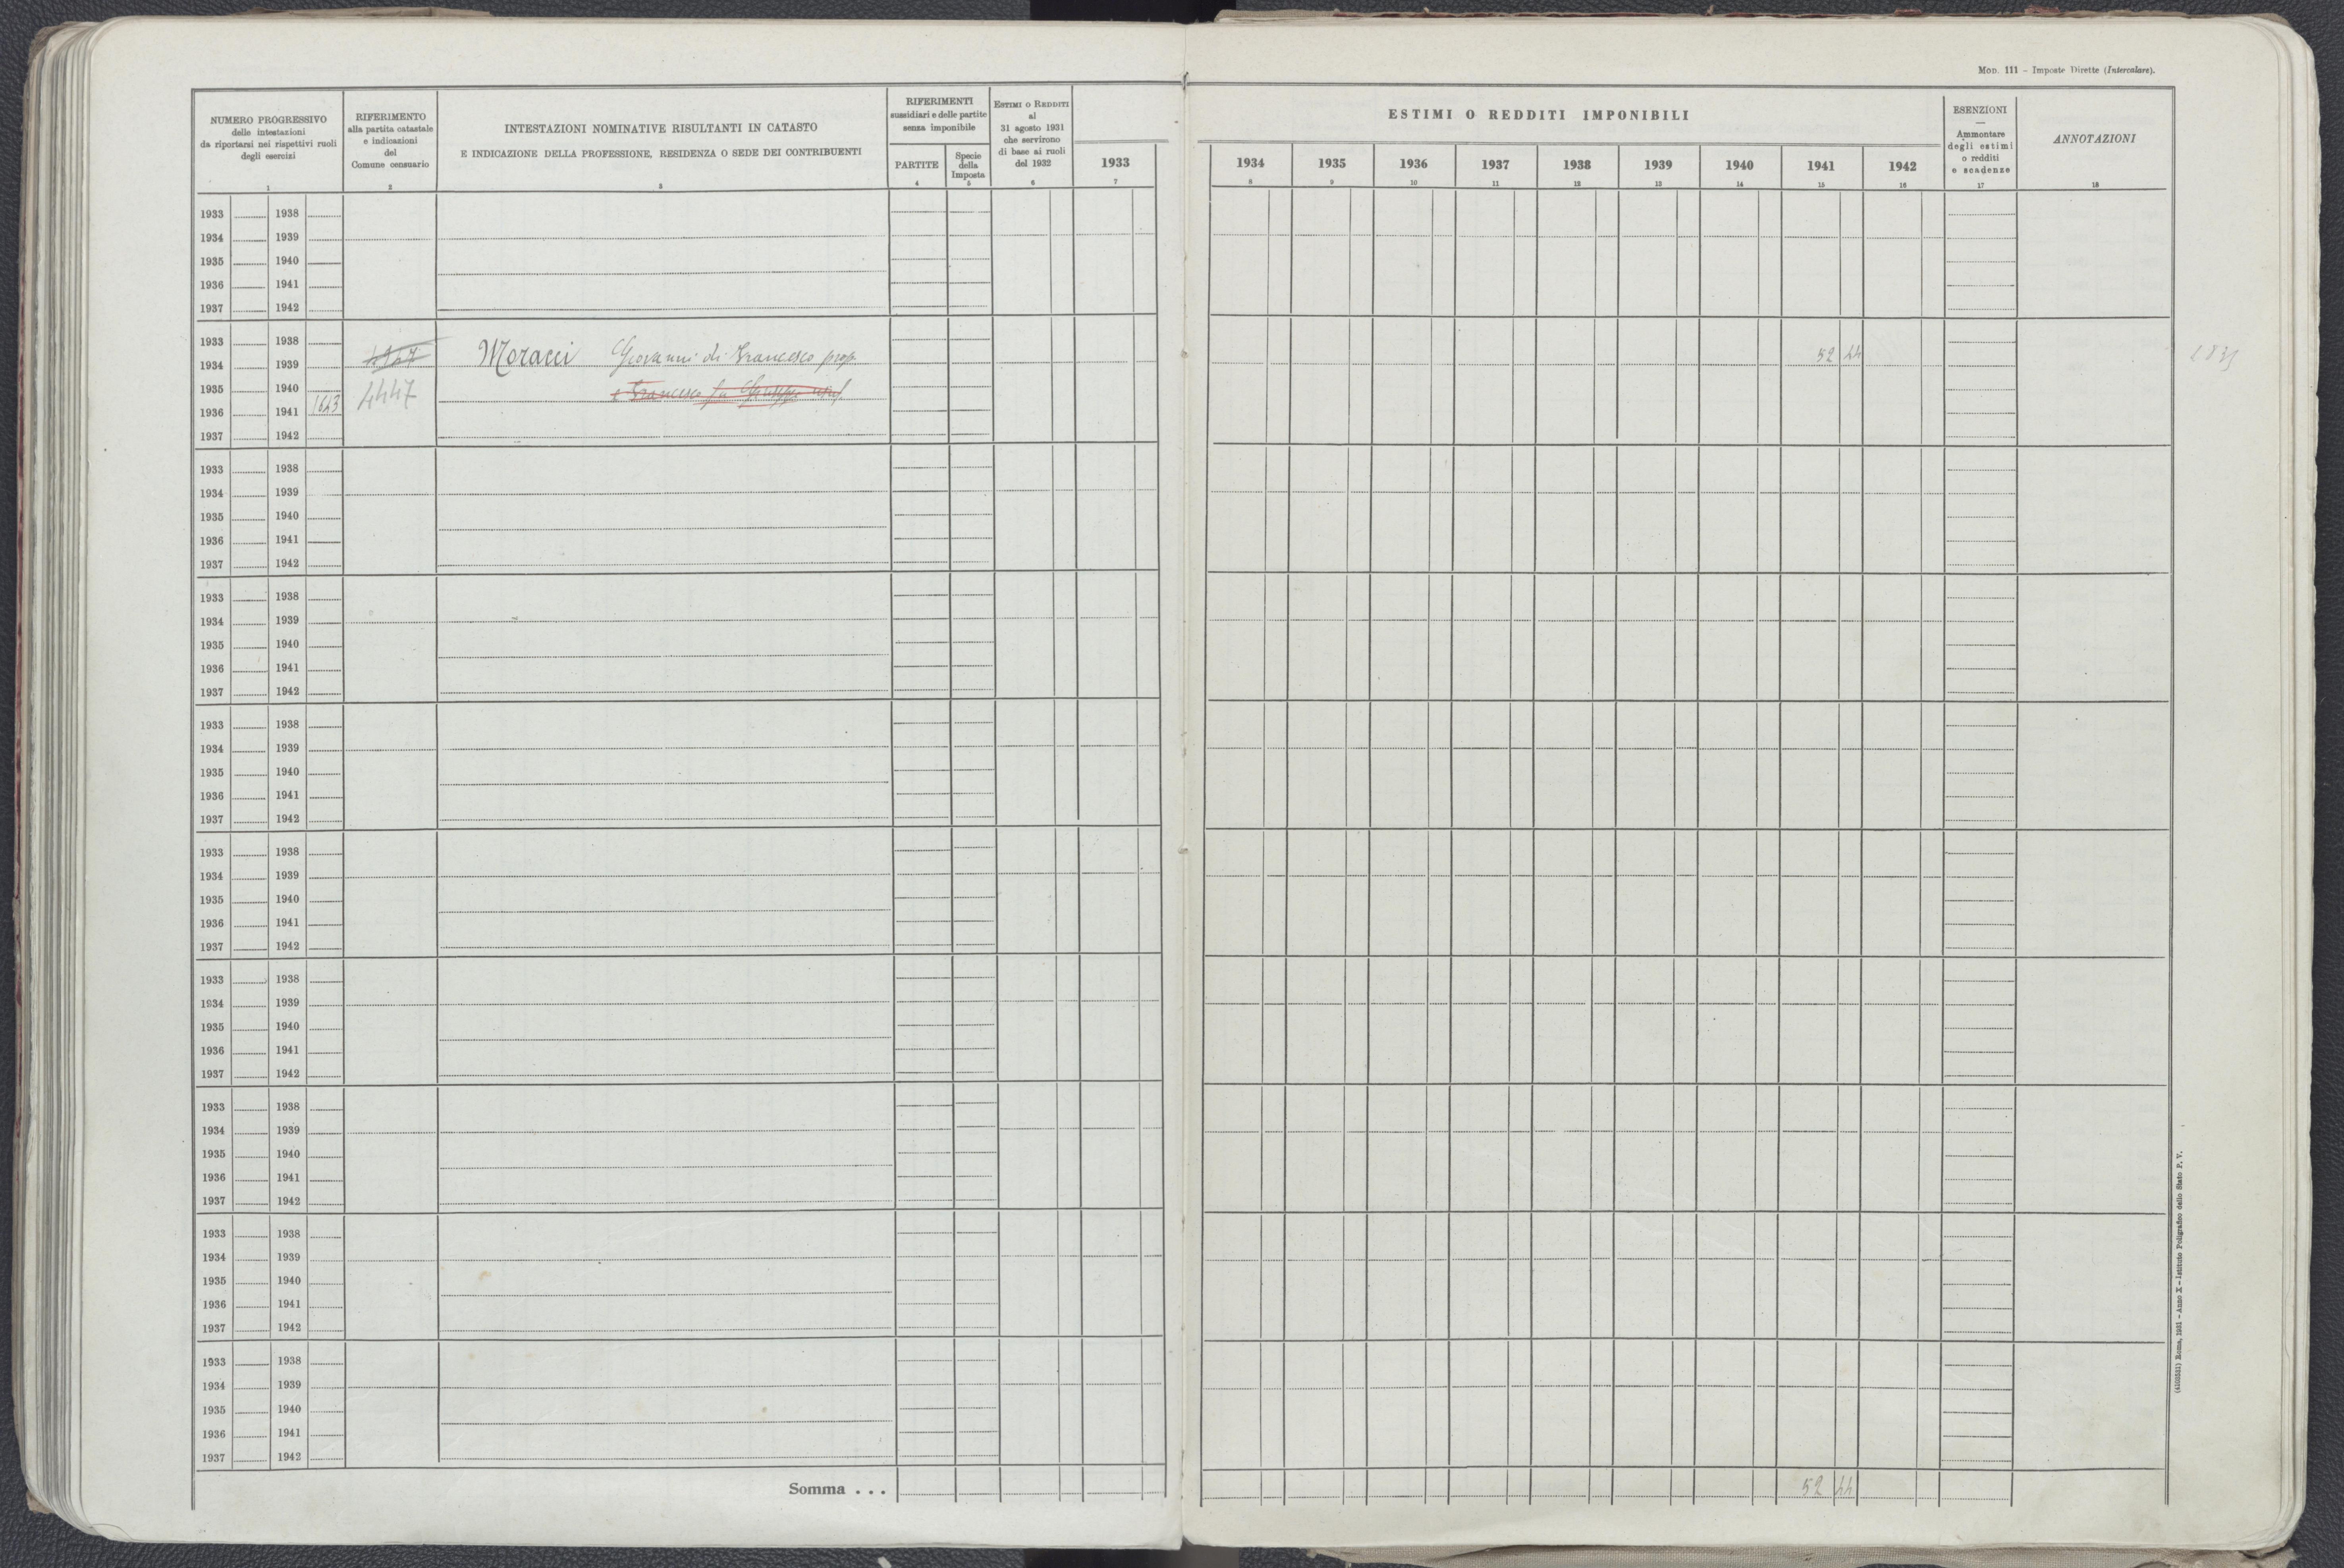 Mod. 111 – Imposte Dirette (Intercalare).
NUMERO PROGRESSIVO
delle intestazioni
da riportarsi nei rispettivi ruoli
degli esercizi
1
RIFERIMENTO
alla partita catastale
e indicazioni
del
Comune censuario
2
INTESTAZIONI NOMINATIVE RISULTANTI IN CATASTO
E INDICAZIONE DELLA PROFESSIONE, RESIDENZA O SEDE DEI CONTRIBUENTI
3
RIFERIMENTI
sussidiari e delle partite
senza imponibile
PARTITE
4
Specie
della
Imposta
5
Estimi o Redditi
al
31 agosto 1931
che servirono
di base ai ruoli
del 1932
6
1933
7
ESTIMI O REDDITI IMPONIBILI
1934 1935 1936 1937 1938 1939 1940 1941 1942
8 9 10 11 12 13 14 15 16
ESENZIONI
—
Ammontare
degli estimi
o redditi
e scadenze
17
ANNOTAZIONI
18
1933 1938
1934 1939
1935 1940
1936 1941
1937 1942
1933 1938
1934 1939 Moracci Giovanni di Francesco prop. 52 44
1935 1940 4447 e Francesco fu Giuseppe usuf.
1936 1941 1643
1937 1942
1933 1938
1934 1939
1935 1940
1936 1941
1937 1942
1933 1938
1934 1939
1935 1940
1936 1941
1937 1942
1933 1938
1934 1939
1935 1940
1936 1941
1937 1942
1933 1938
1934 1939
1935 1940
1936 1941
1937 1942
1933 1938
1934 1939
1935 1940
1936 1941
1937 1942
1933 1938
1934 1939
1935 1940
1936 1941
1937 1942
1933 1938
1934 1939
1935 1940
1936 1941
1937 1942
1933 1938
1934 1939
1935 1940
1936 1941
1937 1942
Somma . . . 52 44
Roma, 1931 – Anno X – Istituto Poligrafico dello Stato P. V.